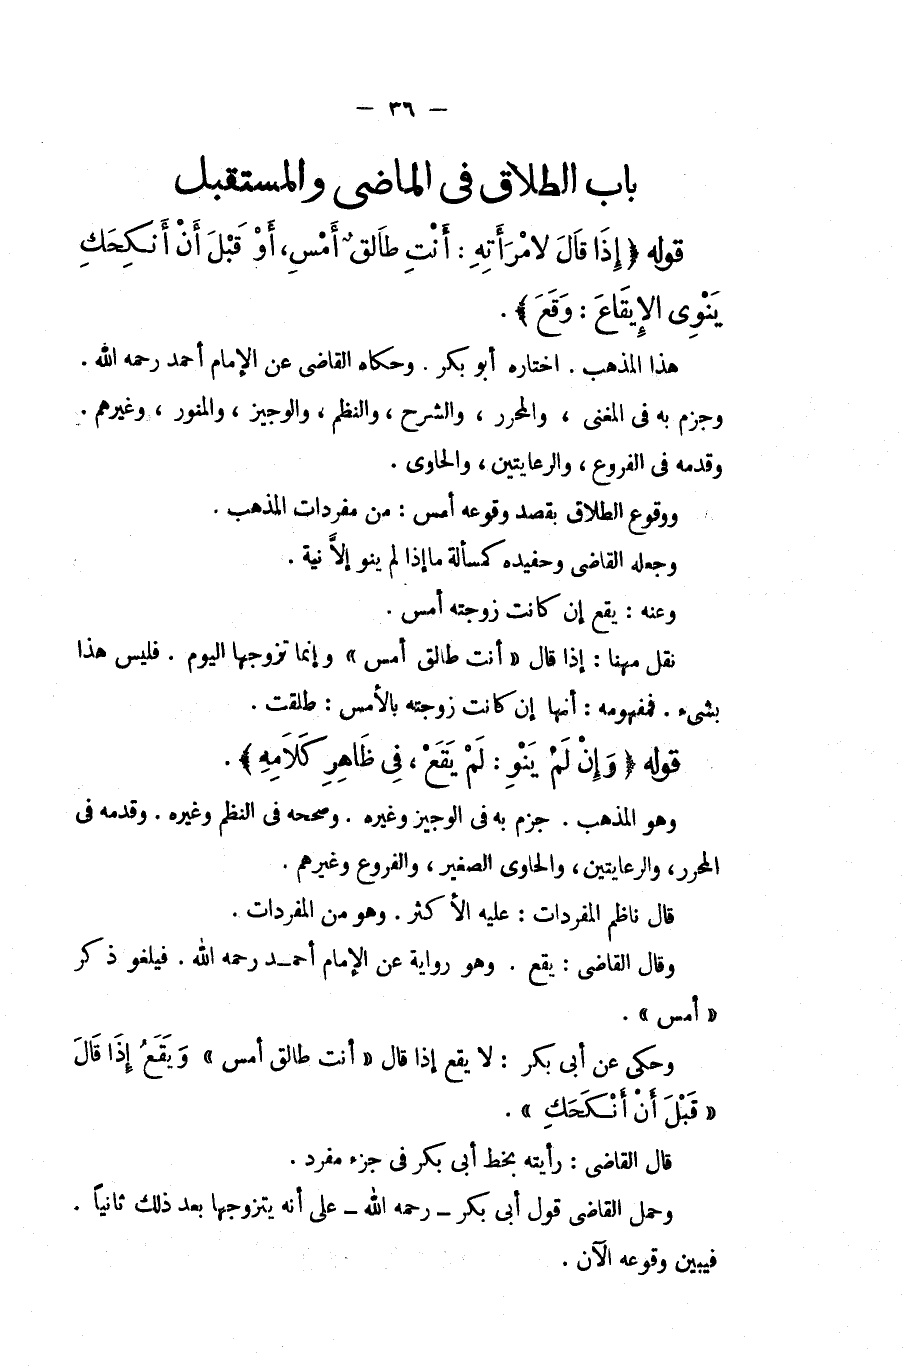 — ٣٦ —
باب الطلاق فى الماضى والمستقبل
قوله ﴿ إِذَا قَالَ لامْرَأَتِهِ : أَنْتِ طَالقٌ أَمْسِ، أَوْ قَبْلَ أَنْ أَنكِحَكِ
يَنْوِى الإِيقَاعَ : وَقَعَ ﴾ .
هذا المذهب . اختاره أبو بكر . وحكاه القاضى عن الإمام أحمد رحمه الله .
وجزم به فى المغنى ، والمحرر ، والشرح ، والنظم ، والوجيز ، والمنور ، وغيرهم .
وقدمه فى الفروع ، والرعايتين، والحاوى .
ووقوع الطلاق بقصد وقوعه أمس : من مفردات المذهب .
وجعله القاضى وحفيده كمسألة ماإذا لم ينو إلاَّ نية .
وعنه : يقع إن كانت زوجته أمس .
نقل مهنا : إذا قال « أنت طالق أمس » وإنما تزوجها اليوم . فليس هذا
بشىء . فمفهومه : أنها إن كانت زوجته بالأمس : طلقت .
قوله ﴿ وَإِنْ لَمْ يَنْوِ : لَمْ يَقَعْ ، فِى ظَاهِرِ كَلَامِهِ ﴾ .
وهو المذهب . جزم به فى الوجيز وغيره . وصححه فى النظم وغيره . وقدمه فى
المحرر، والرعايتين، والحاوى الصغير، والفروع وغيرهم .
قال ناظم المفردات : عليه الأكثر . وهو من المفردات .
وقال القاضى : يقع . وهو رواية عن الإمام أحمـد رحمه الله . فيلغو ذكر
« أمس » .
وحكى عن أبى بكر : لا يقع إذا قال « أنت طالق أمس » وَيَقَعُ إِذَا قَالَ
« قَبْلَ أَنْ أَنْكَحَكِ » .
قال القاضى : رأيته بخط أبى بكر فى جزء مفرد .
وحمل القاضى قول أبى بكر ــ رحمه الله ــ على أنه يتزوجها بعد ذلك ثانياً .
فيبين وقوعه الآن .